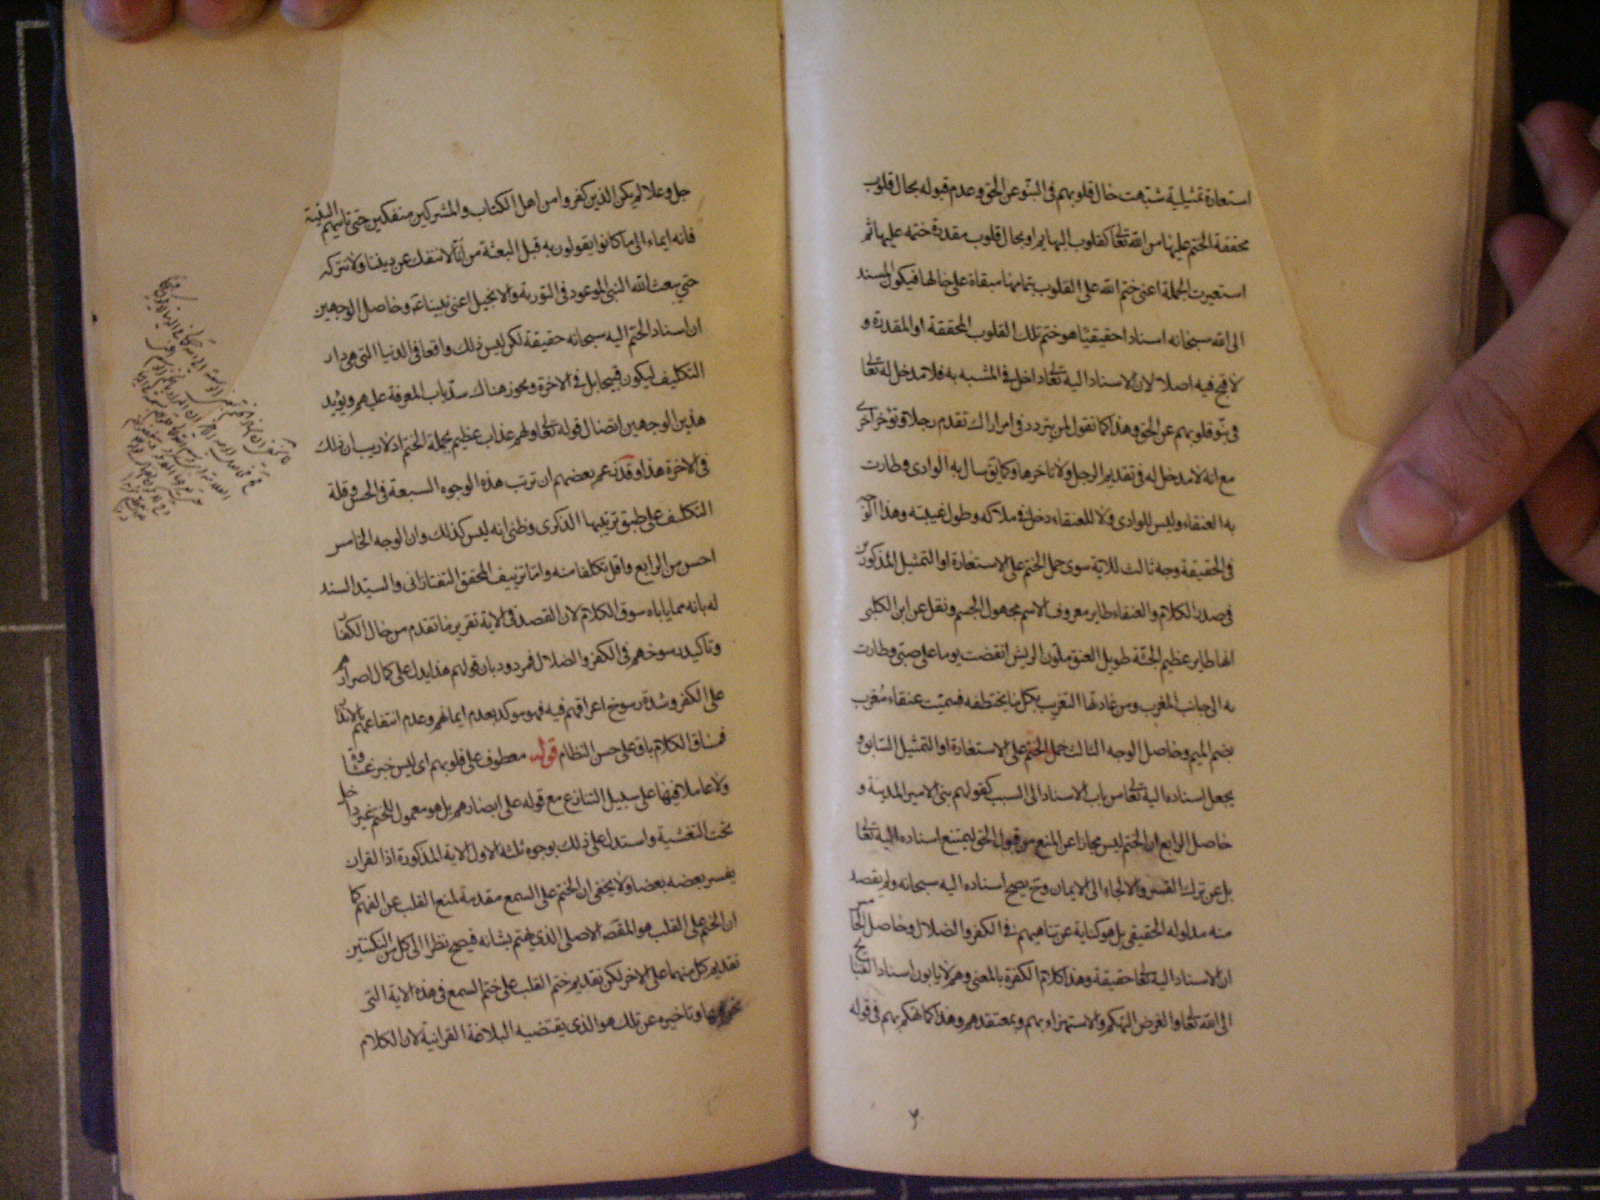 استعارة تمثيلية شبهت حال قلوبهم فى النبو عن الحق وعدم قبوله بحال قلوب
محققة الختم عليها من الله تعالى كقلوب البهايم او بحال قلوب مقدرة ختمه عليها ثم
استعيرت الجملة اعنى ختم الله على القلوب بتمامها مبقاة على حالها فيكون المسند
الى الله سبحانه اسنادا حقيقيا هو ختم تلك القلوب المحققة او المقدرة و
لا قبح فيه اصلا لان الاسناد اليه تعالى داخل فى المشبه به فلا مدخل له تعالى
فى نبو قلوبهم عن الحق وهذا كما تقول لمن يتردد فى امر اراك تقدم رجلا وتؤخر اخرى
مع انه لا مدخل له فى تقديم الرجل ولا تاخرها وكما تق سال به الوادى وطارت
به العنقاء وليس للوادى ولا للعنقاء دخل فى هلاكه وطول غيبته وهذا الوجه
فى الحقيقة وجه ثالث للاية سوى حمل الختم على الاستعارة او التمثيل المذكورين
فى صدر الكلام والعنقاء طاير معروف الاسم مجهول الجسم ونقل عن ابن الكلبى
انها طاير عظيم الجثة طويل العنق ملون الريش انقضت يوما على صبى وطارت
به الى جانب المغرب ومن عادتها التغريب بكل ما يختطفه فسميت عنقاء مُغرب
بضم الميم وحاصل الوجه الثالث حمل الختم على الاستعارة او التمثيل السابق و
يجعل اسناده اليه تعالى من باب الاسناد الى السبب كقولهم بنى الامير المدينة و
حاصل الرابع ان الختم ليس مجازا عن المنع من قبول الحق ليمتنع اسناده اليه تعالى
بل عن ترك القسر والالجاء الى الايمان وح يصح اسناده اليه سبحانه ولم يقصد
منه مدلوله الحقيقى بل هو كناية عن تناهيهم فى الكفر والضلال وحاصل الخامس
ان الاسناد اليه تعالى حقيقة وهذا كلام الكفرة بالمعنى وهم لا يابون اسناد القبايح
الى الله تعالى والغرض التهكم والاستهزاء بهم وبمعتقدهم وهذا كما تهكم بهم فى قوله
جل وعلا لم يكن الذين كفروا من اهل الكتاب والمشركين منفكين حتى تاتيهم البينة
فانه ايماء الى ما كانوا يقولون به قبل البعثة من انا لا ننفك عن ديننا ولا نتركه
حتى يبعث الله النبى الموعود فى التورية والانجيل اعنى نبينا عم وحاصل الوجهين
ان اسناد الختم اليه سبحانه حقيقة لكن ليس ذلك واقعا فى الدنيا التى هى دار
التكليف ليكون قبيحا بل فى الاخرة ويجوز هناك سد باب المعرفة عليهم ويؤيد
هذين الوجهين اتصال قوله تعالى ولهم عذاب عظيم بجملة الختم اذ لا ريب ان ذلك
فى الاخرة هذا وقد زعم بعضهم ان ترتب هذه الوجوه السبعة فى الحسن وقلة
التكلف على طبق ترتيبها الذكرى وظنى انه ليس كذلك وان الوجه الخامس
احسن من الرابع واقل تكلفا منه واما تزييف المحقق التفتازانى والسيد السند
له بانه مما ياباه سوق الكلام لان القصد فى الاية تقرير ما تقدم من حال الكفار
وتاكيد رسوخهم فى الكفر والضلال فمردود بان قولهم هذا يدل على كمال اصرارهم
على الكفر وشدة رسوخ اعراقهم فيه فهو موكد بعدم ايمانهم وعدم انتفاعهم بالانذار
فساق الكلام باق على حسن النظام قوله معطوف على قلوبهم اى ليس خبر غشاوة
ولا عاملا فيها على سبيل التنازع مع قوله على ابصارهم بل هو معمول للختم غير داخل
تحت التغشية واستدل على ذلك بوجوه ثلثة الاول الاية المذكورة اذ القران
يفسر بعضه بعضا ولا يخفى ان الختم على السمع مقدمة لمنع القلب عن الفهم كما
ان الختم على القلب هو المقصد الاصلى الذى يهتم بشانه فيصح نظرا الى كل من النكتتين
تقديم كل منهما على الاخر لكن تقديم ختم القلب على ختم السمع فى هذه الاية التى
وتاخيره عن تلك هو الذى يقتضيه البلاغة القرانية لان الكلام